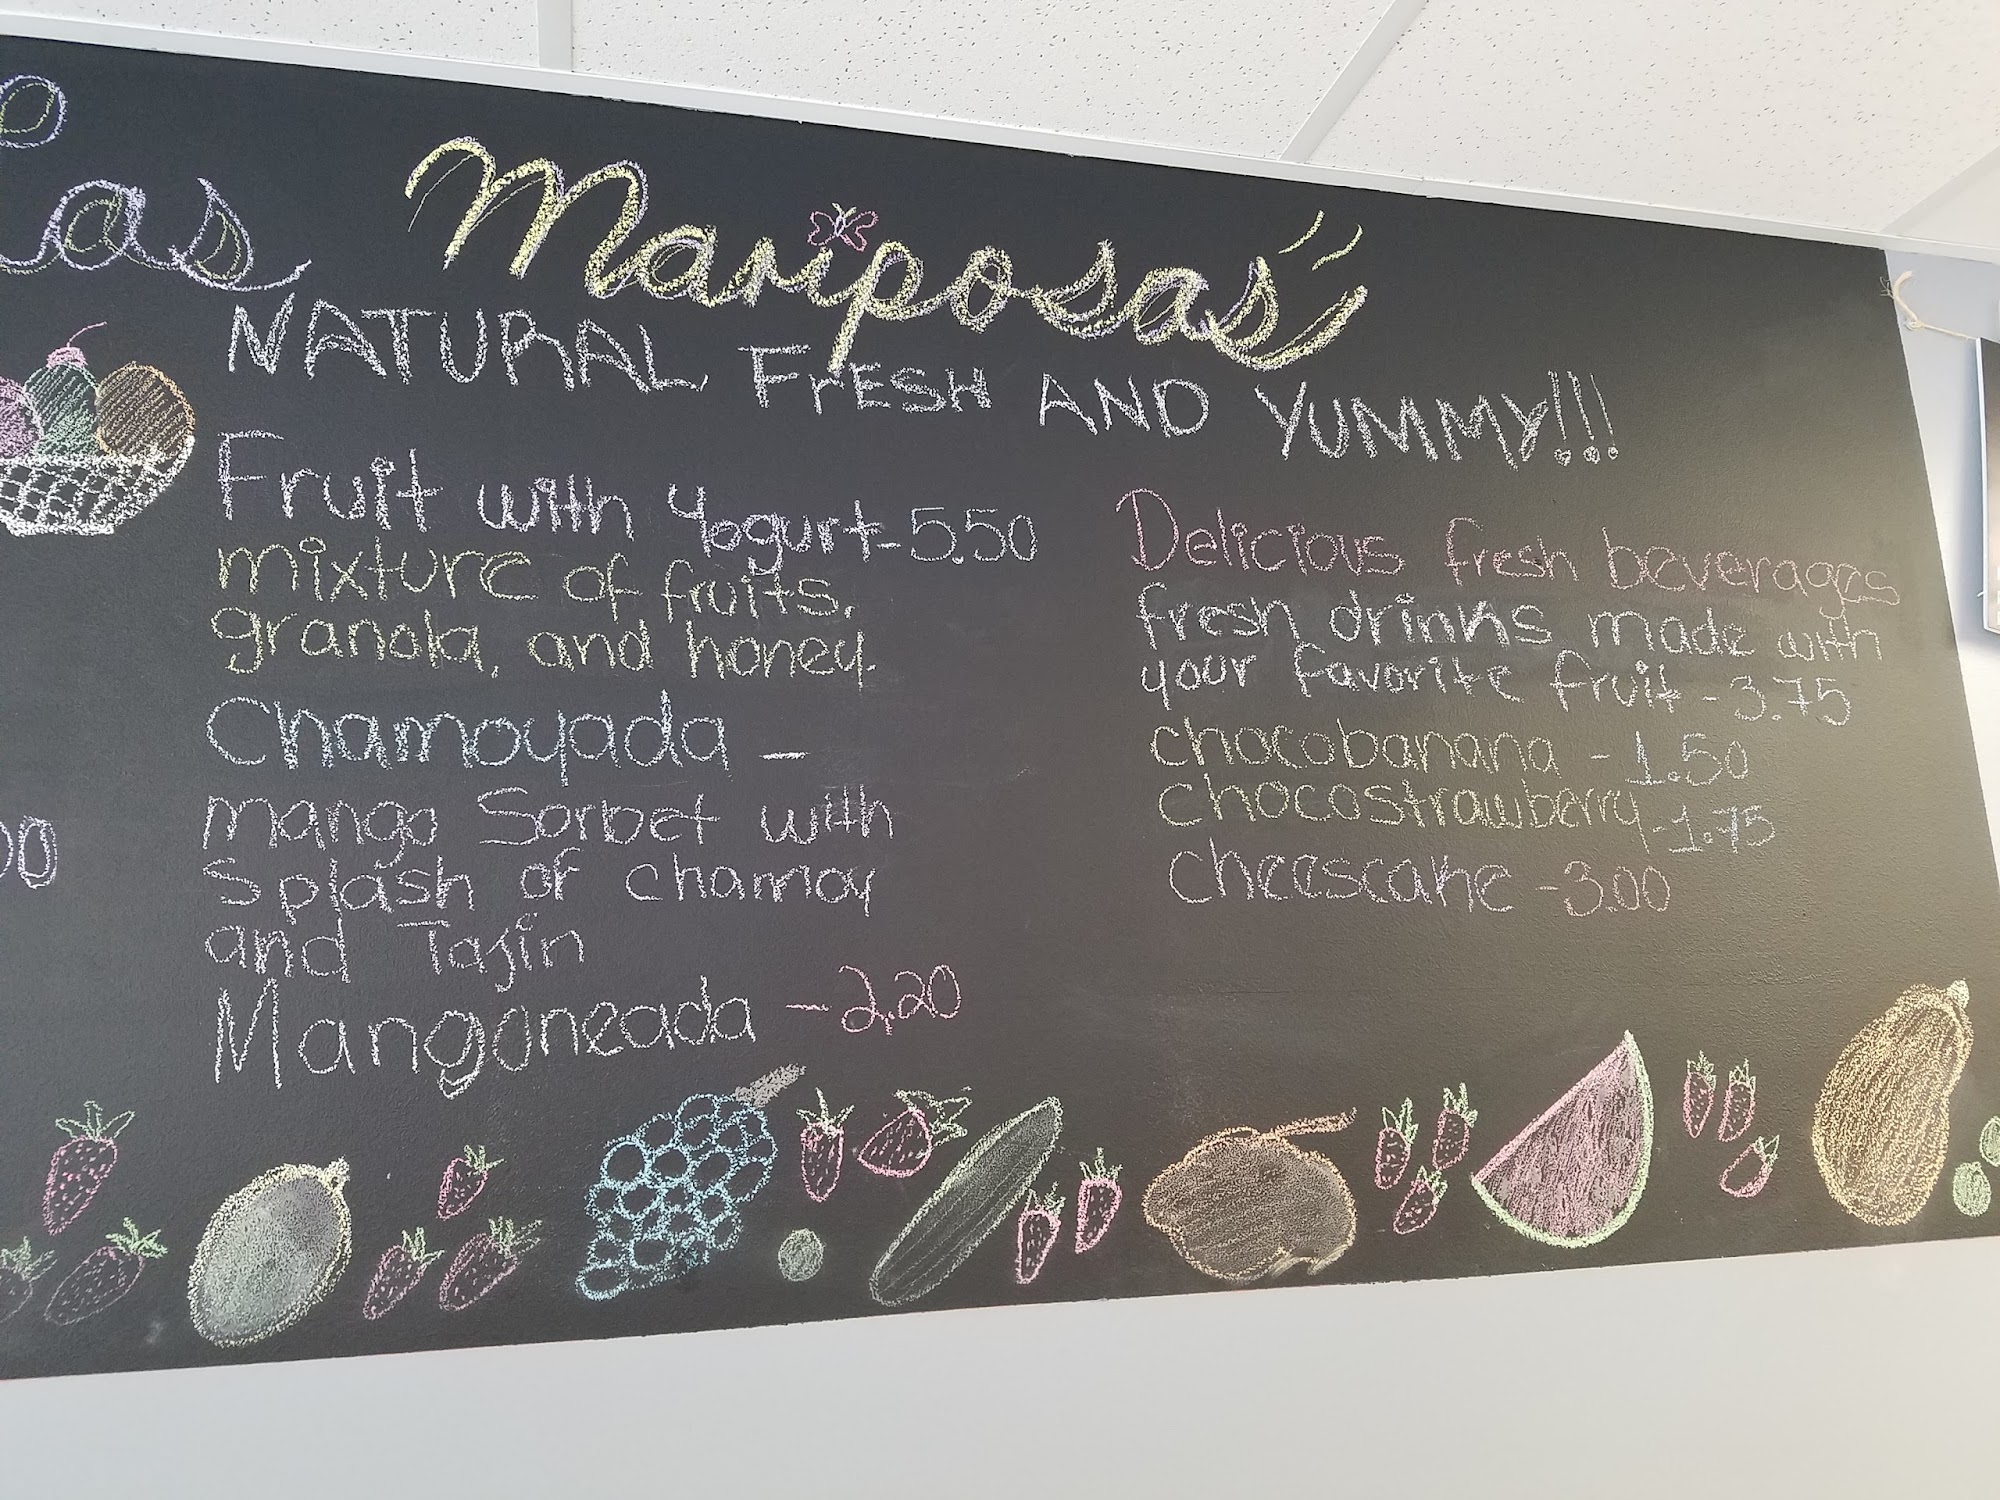 Las Mariposas"
NATURAL, FrESH AND YUMMY!!!
Fruit with Yogurt-5.50
mixture of fruits,
granola, and honey.
Chamoyada -
mango Sorbet with
Splash of chamoy
and Tajin
Mangoneada -2.20
Delicious fresh beverages
fresh drinks made with
your favorite fruit -3.75
chocobanana - 1.50
chocostrawberry -1.75
cheescake -3.00
00